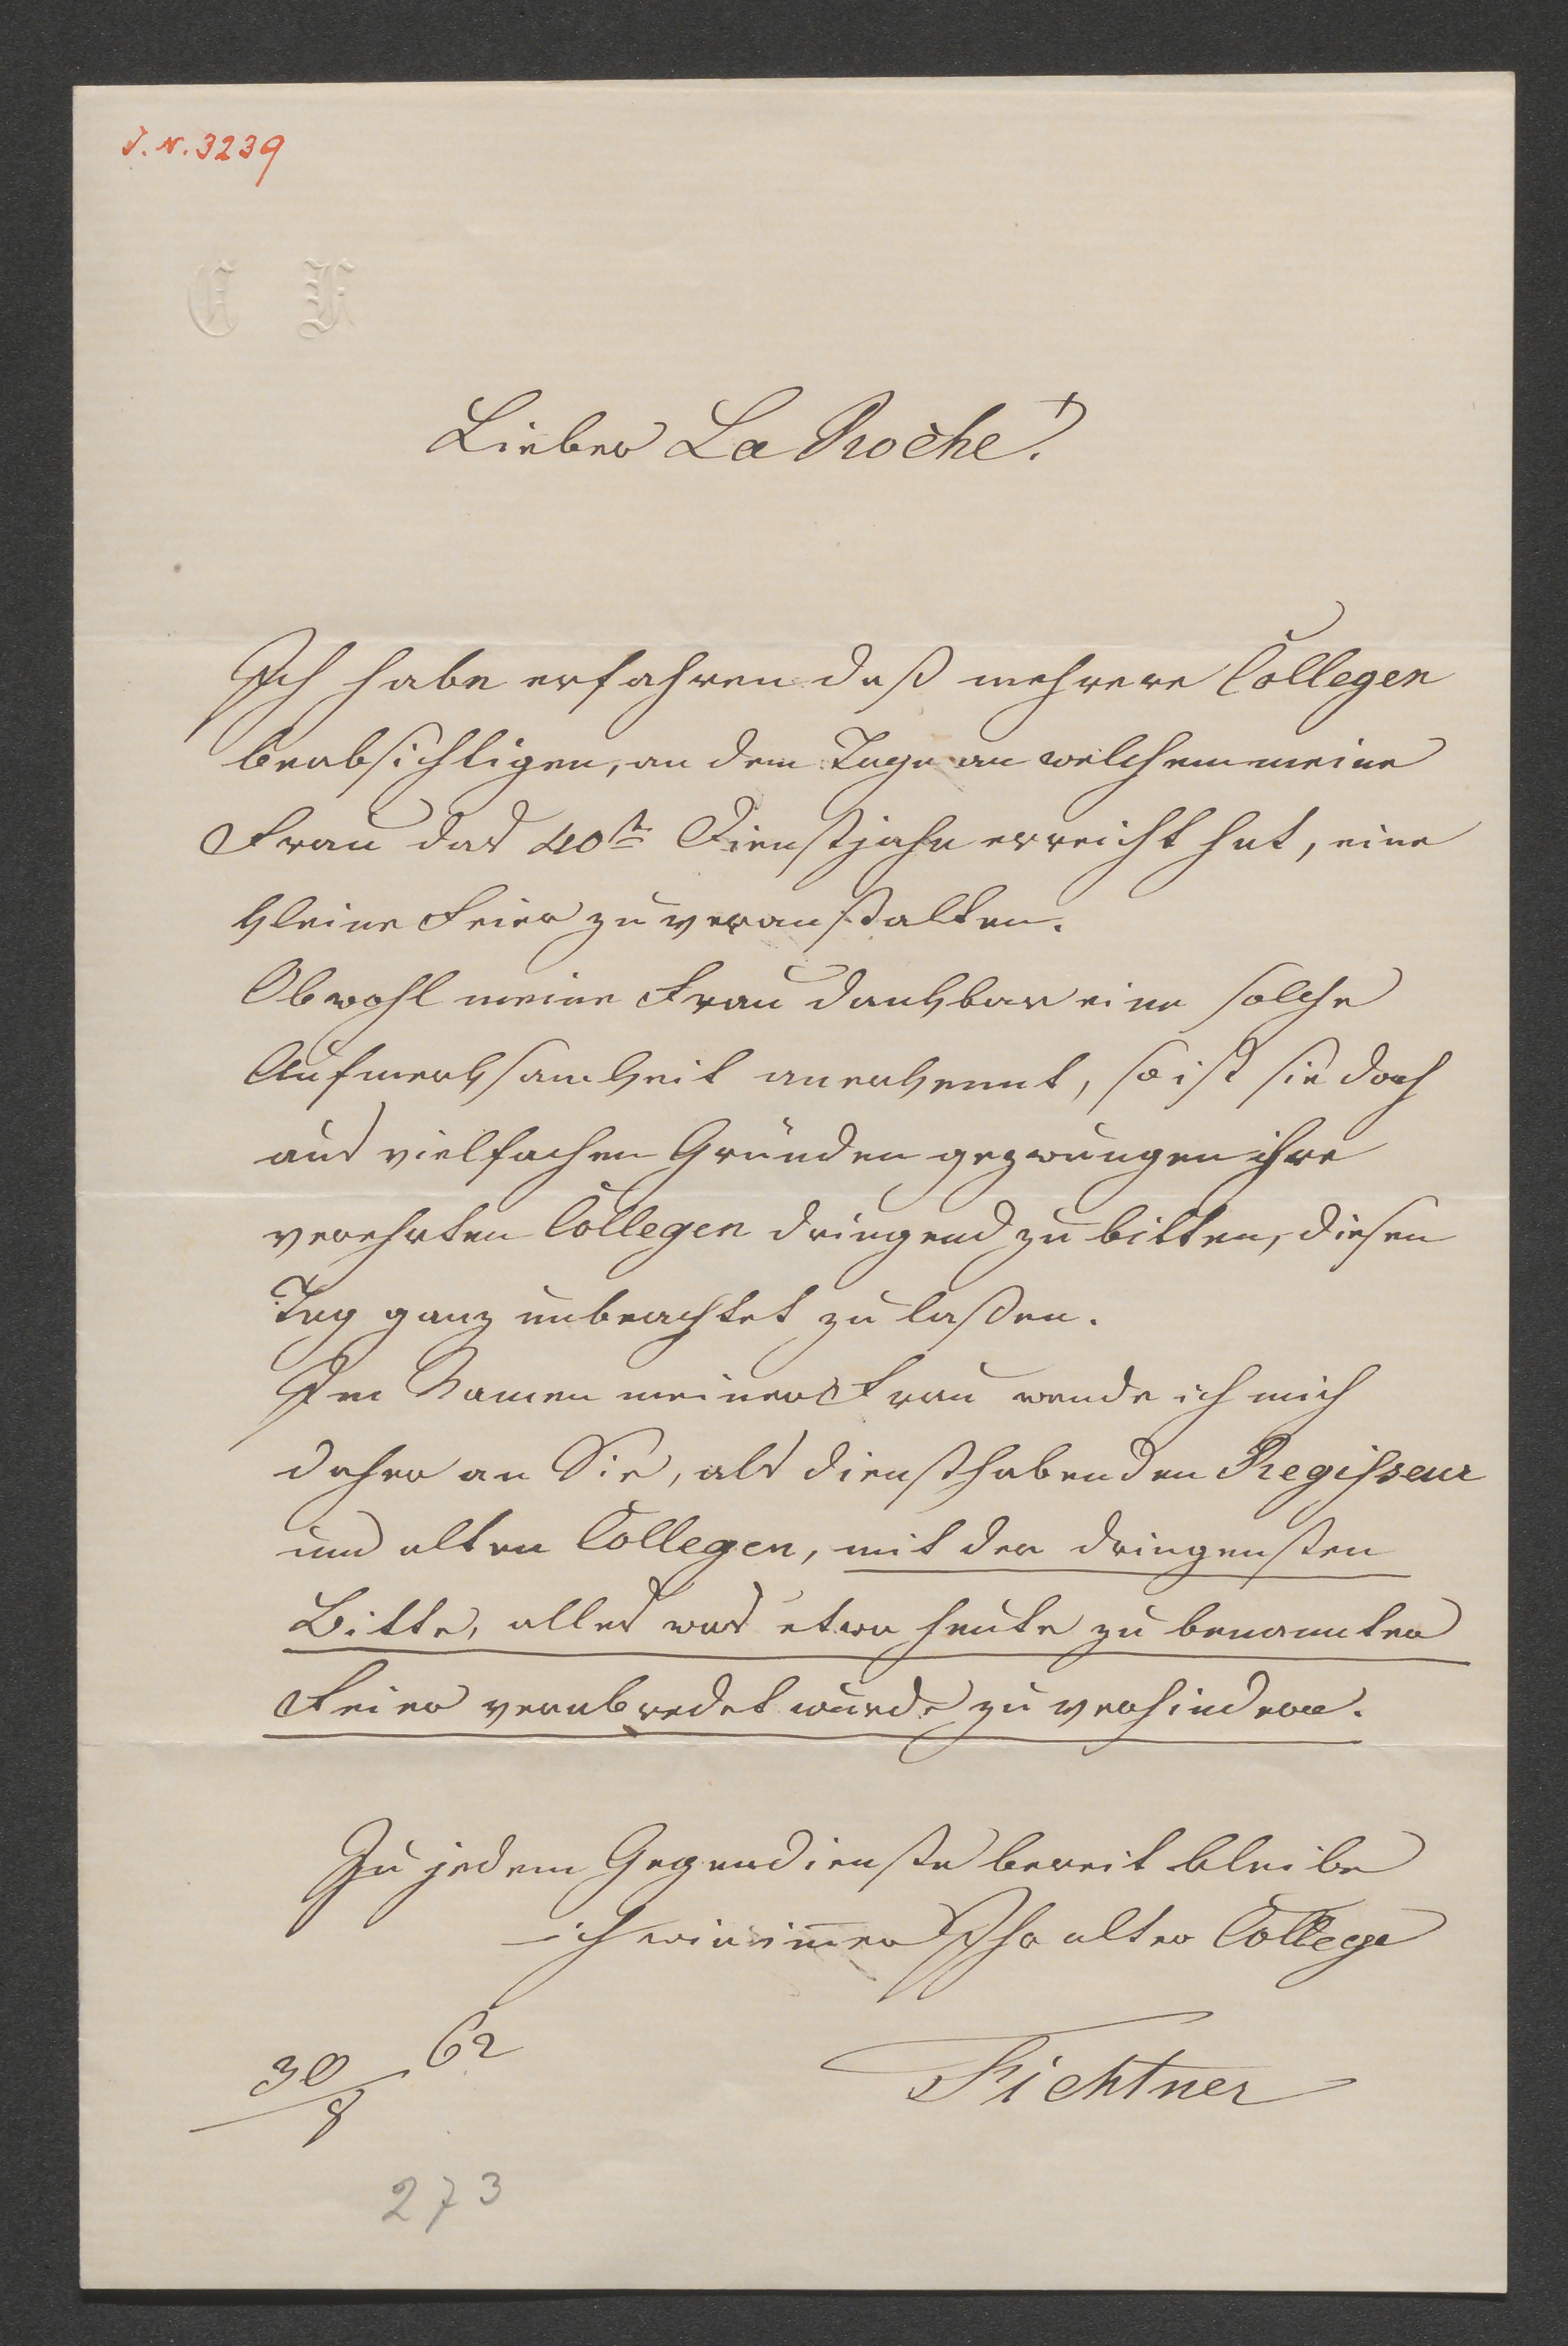 J. N. 3239
C F
Lieber La Roche!
Ich habe erfahren daß mehrere Collegen
beabsichtigen, an dem Tage an welchem meine
Frau das 40te Dienstjahr erreicht hat, eine
kleine Feier zu veranstalten.
Obwohl meine Frau dankbar eine solche
Aufmerksamkeit anerkennt, so ist sie doch
aus vielfachen Gründen gezwungen ihre
verehrten Collegen dringend zu bitten, diesen
Tag ganz unbeachtet zu laßen.
Im Namen meiner Frau wende ich mich
daher an Sie, als diensthabenden Regisseur
und alten Collegen, mit der dringensten
Bitte, alles was etwa heute zu benannter
Feier verabredet wurde zu verhindern.
Zu jedem Gegendienste bereit bleibe
ich wie im̅er Ihr alter College
30/8 62
Fichtner
273